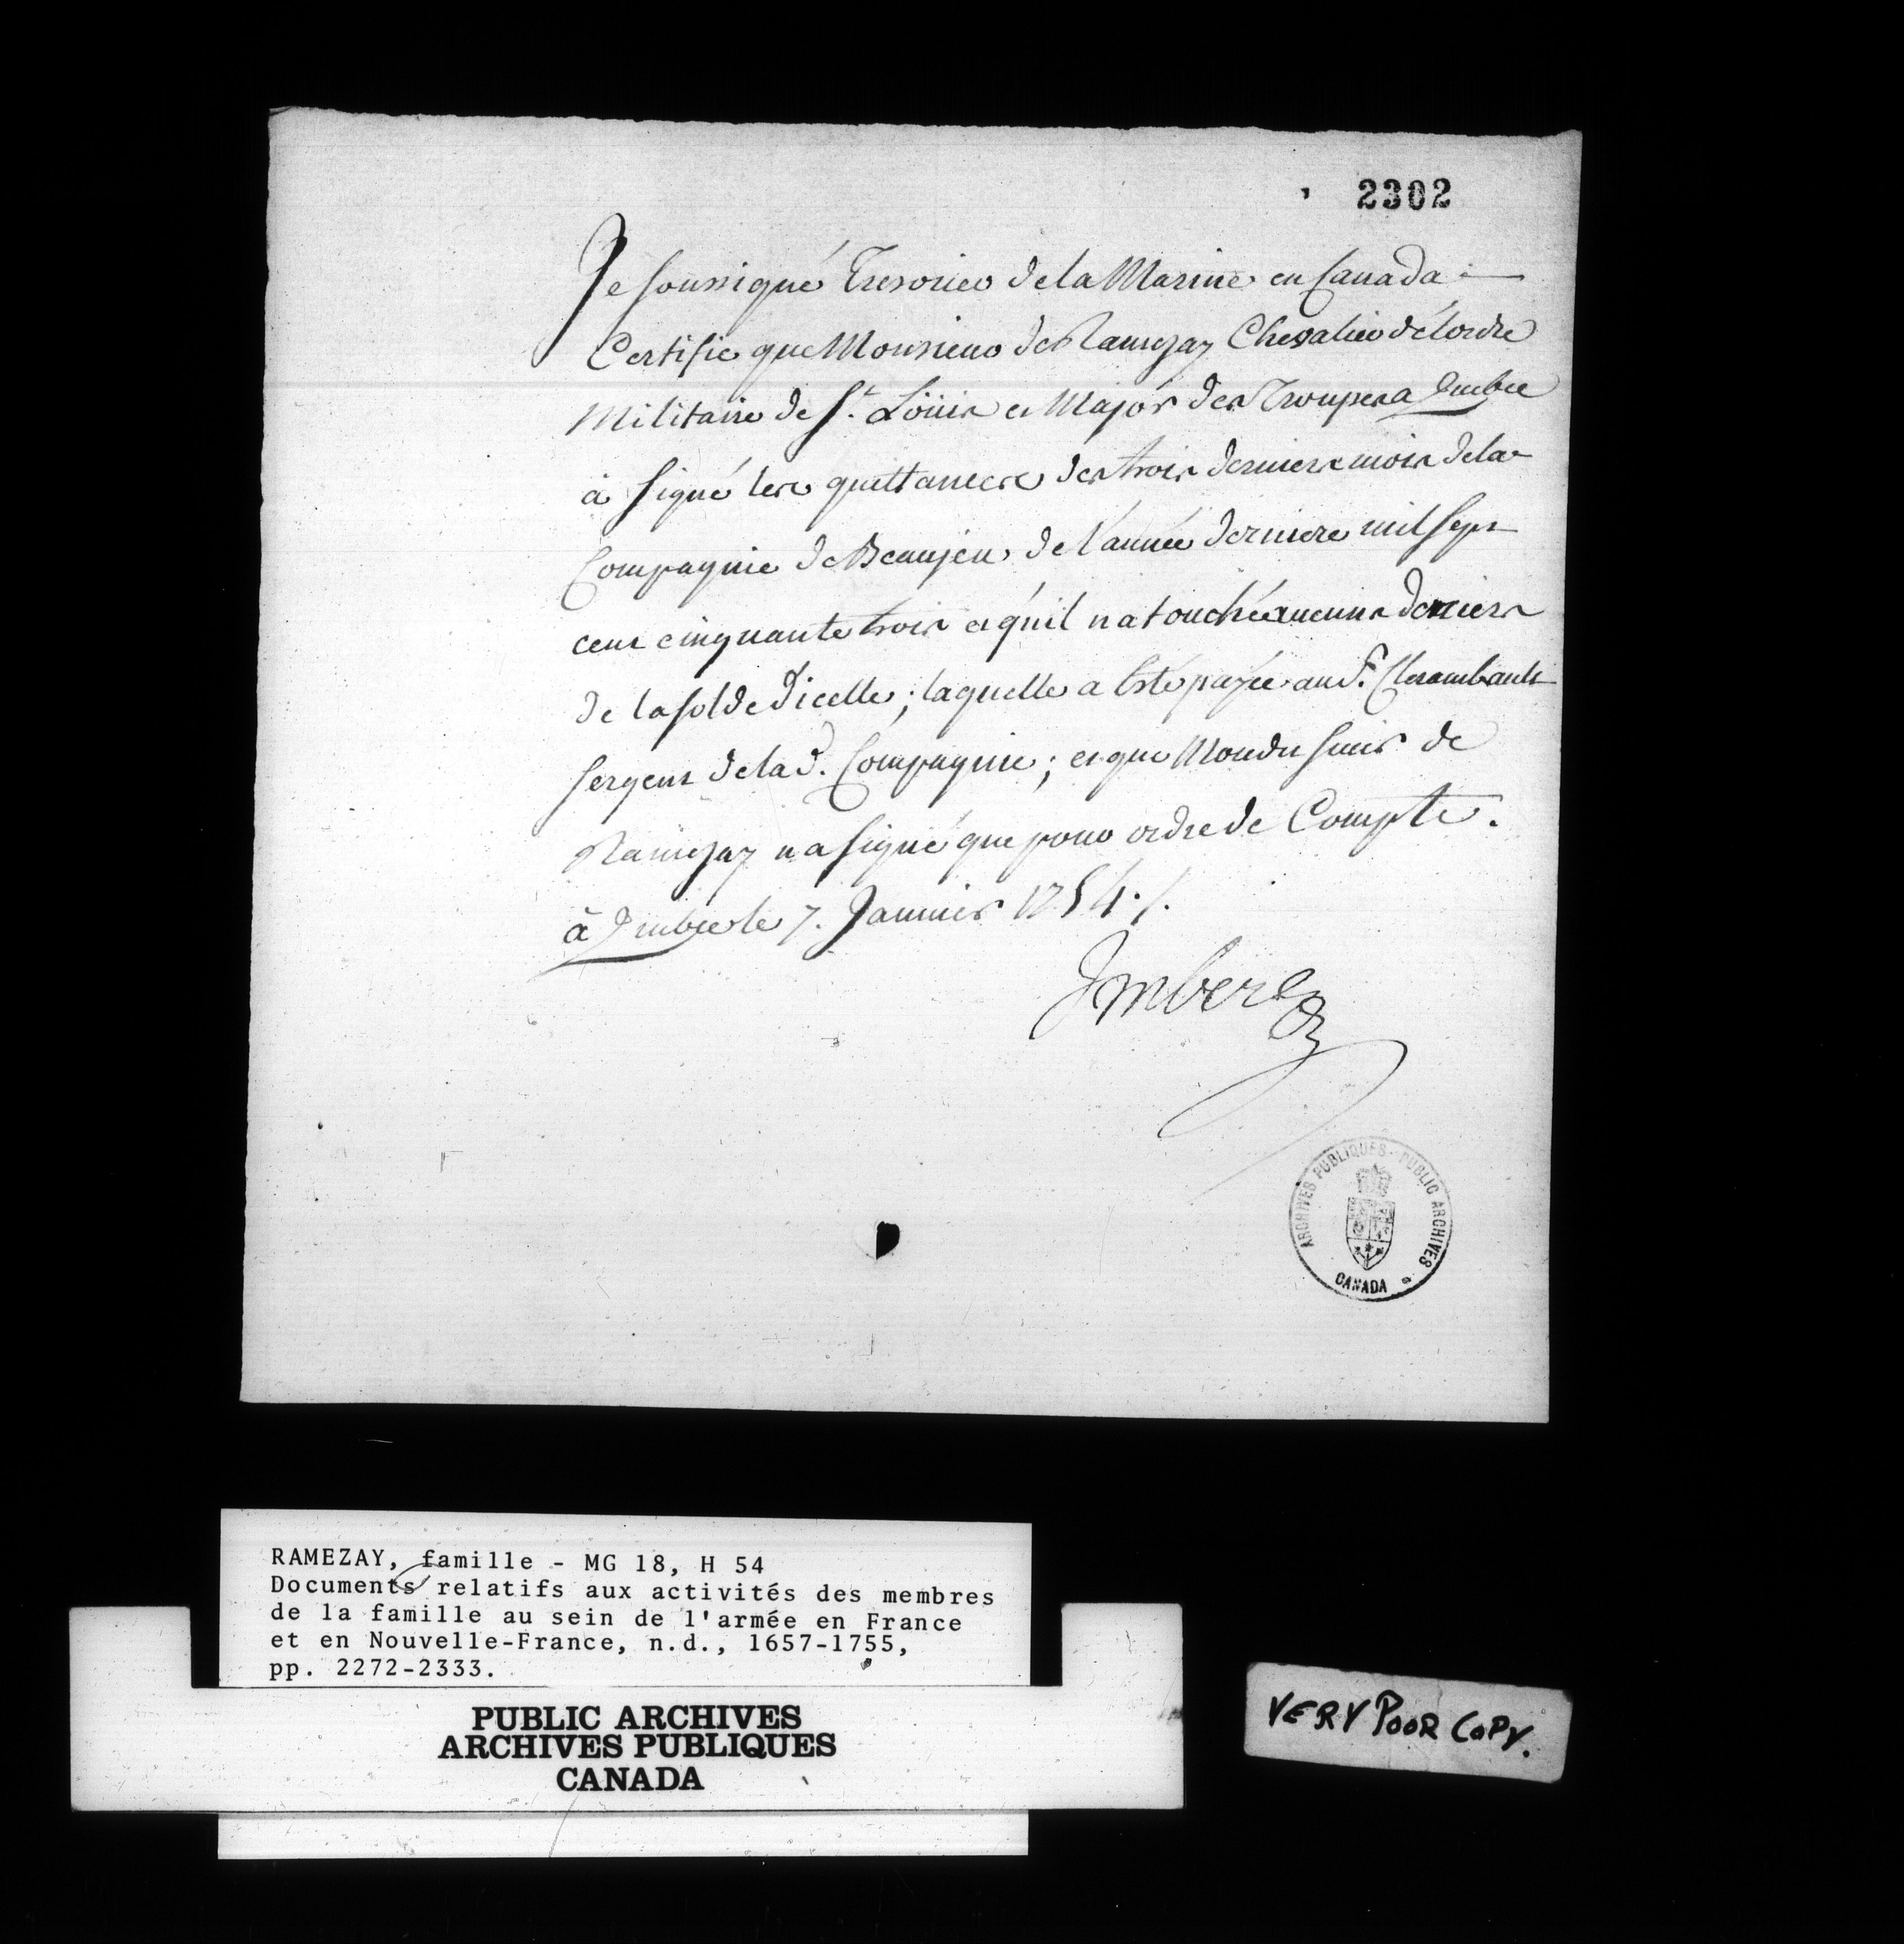 2302
Je soussigné Tresorier de la Marine en Canada
Certifie que Monsieur de Ramezay Chevalier de L'ordre
Militaire de St. Loüis et Major des Troupes a Quebec
a signé les quittances des trois derniers mois de la
Compagnie de Beaujeu, de l'année derniere mil sept
cent cinquante trois et qu'il n'a touché aucuns deniers
de la solde d'icelle; laquelle a esté payée au S. Clerambault
sergent de la d. Compagnie; et que Mondit sieur de
Ramezay n'a signé que pour ordre de Compte.
à Quebec le 7. Janvier 1754./.
Imbert
ARCHIVES PUBLIQUES - PUBLIC ARCHIVES
CANADA
RAMEZAY, famille - MG 18, H 54
Documents relatifs aux activités des membres
de la famille au sein de l'armée en France
et en Nouvelle-France, n.d., 1657-1755,
pp. 2272-2333.
PUBLIC ARCHIVES
ARCHIVES PUBLIQUES
CANADA
VERY POOR COPY.